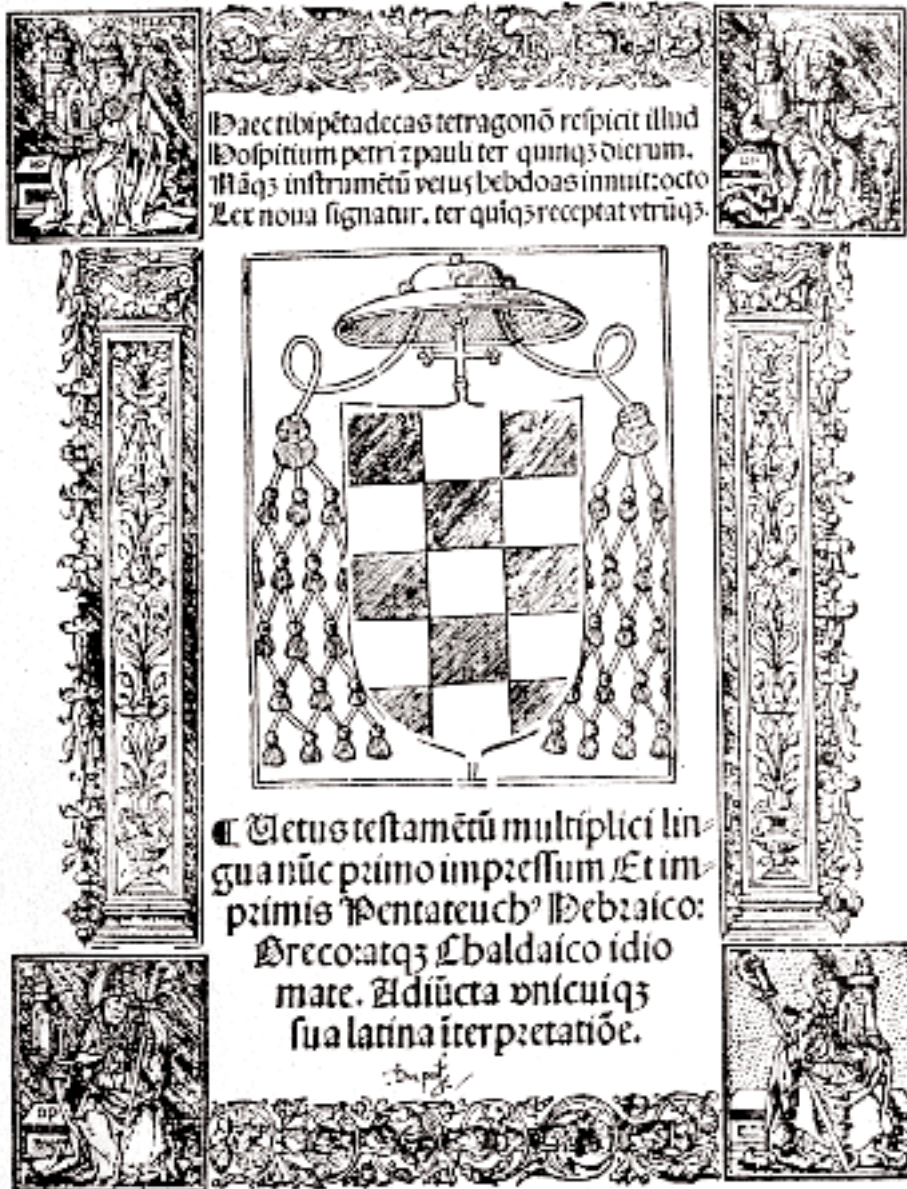 Haec tibi pētadecas tetragonō respicit illud
Hospitium petri ⁊ pauli ter quinqꝫ dierum.
Nāqꝫ instrumētū vetus hebdoas innuit: octo
Lex noua signatur. ter quīqꝫ receptat vtrūqꝫ.
¶ Uetus testamētū multiplici lin-
gua nūc primo impressum Et im-
primis Pentateuchꝰ Hebraico:
Greco: atqꝫ Chaldaico idio
mate. Adiūcta vnicuiqꝫ
sua latina īterpretatiōe.